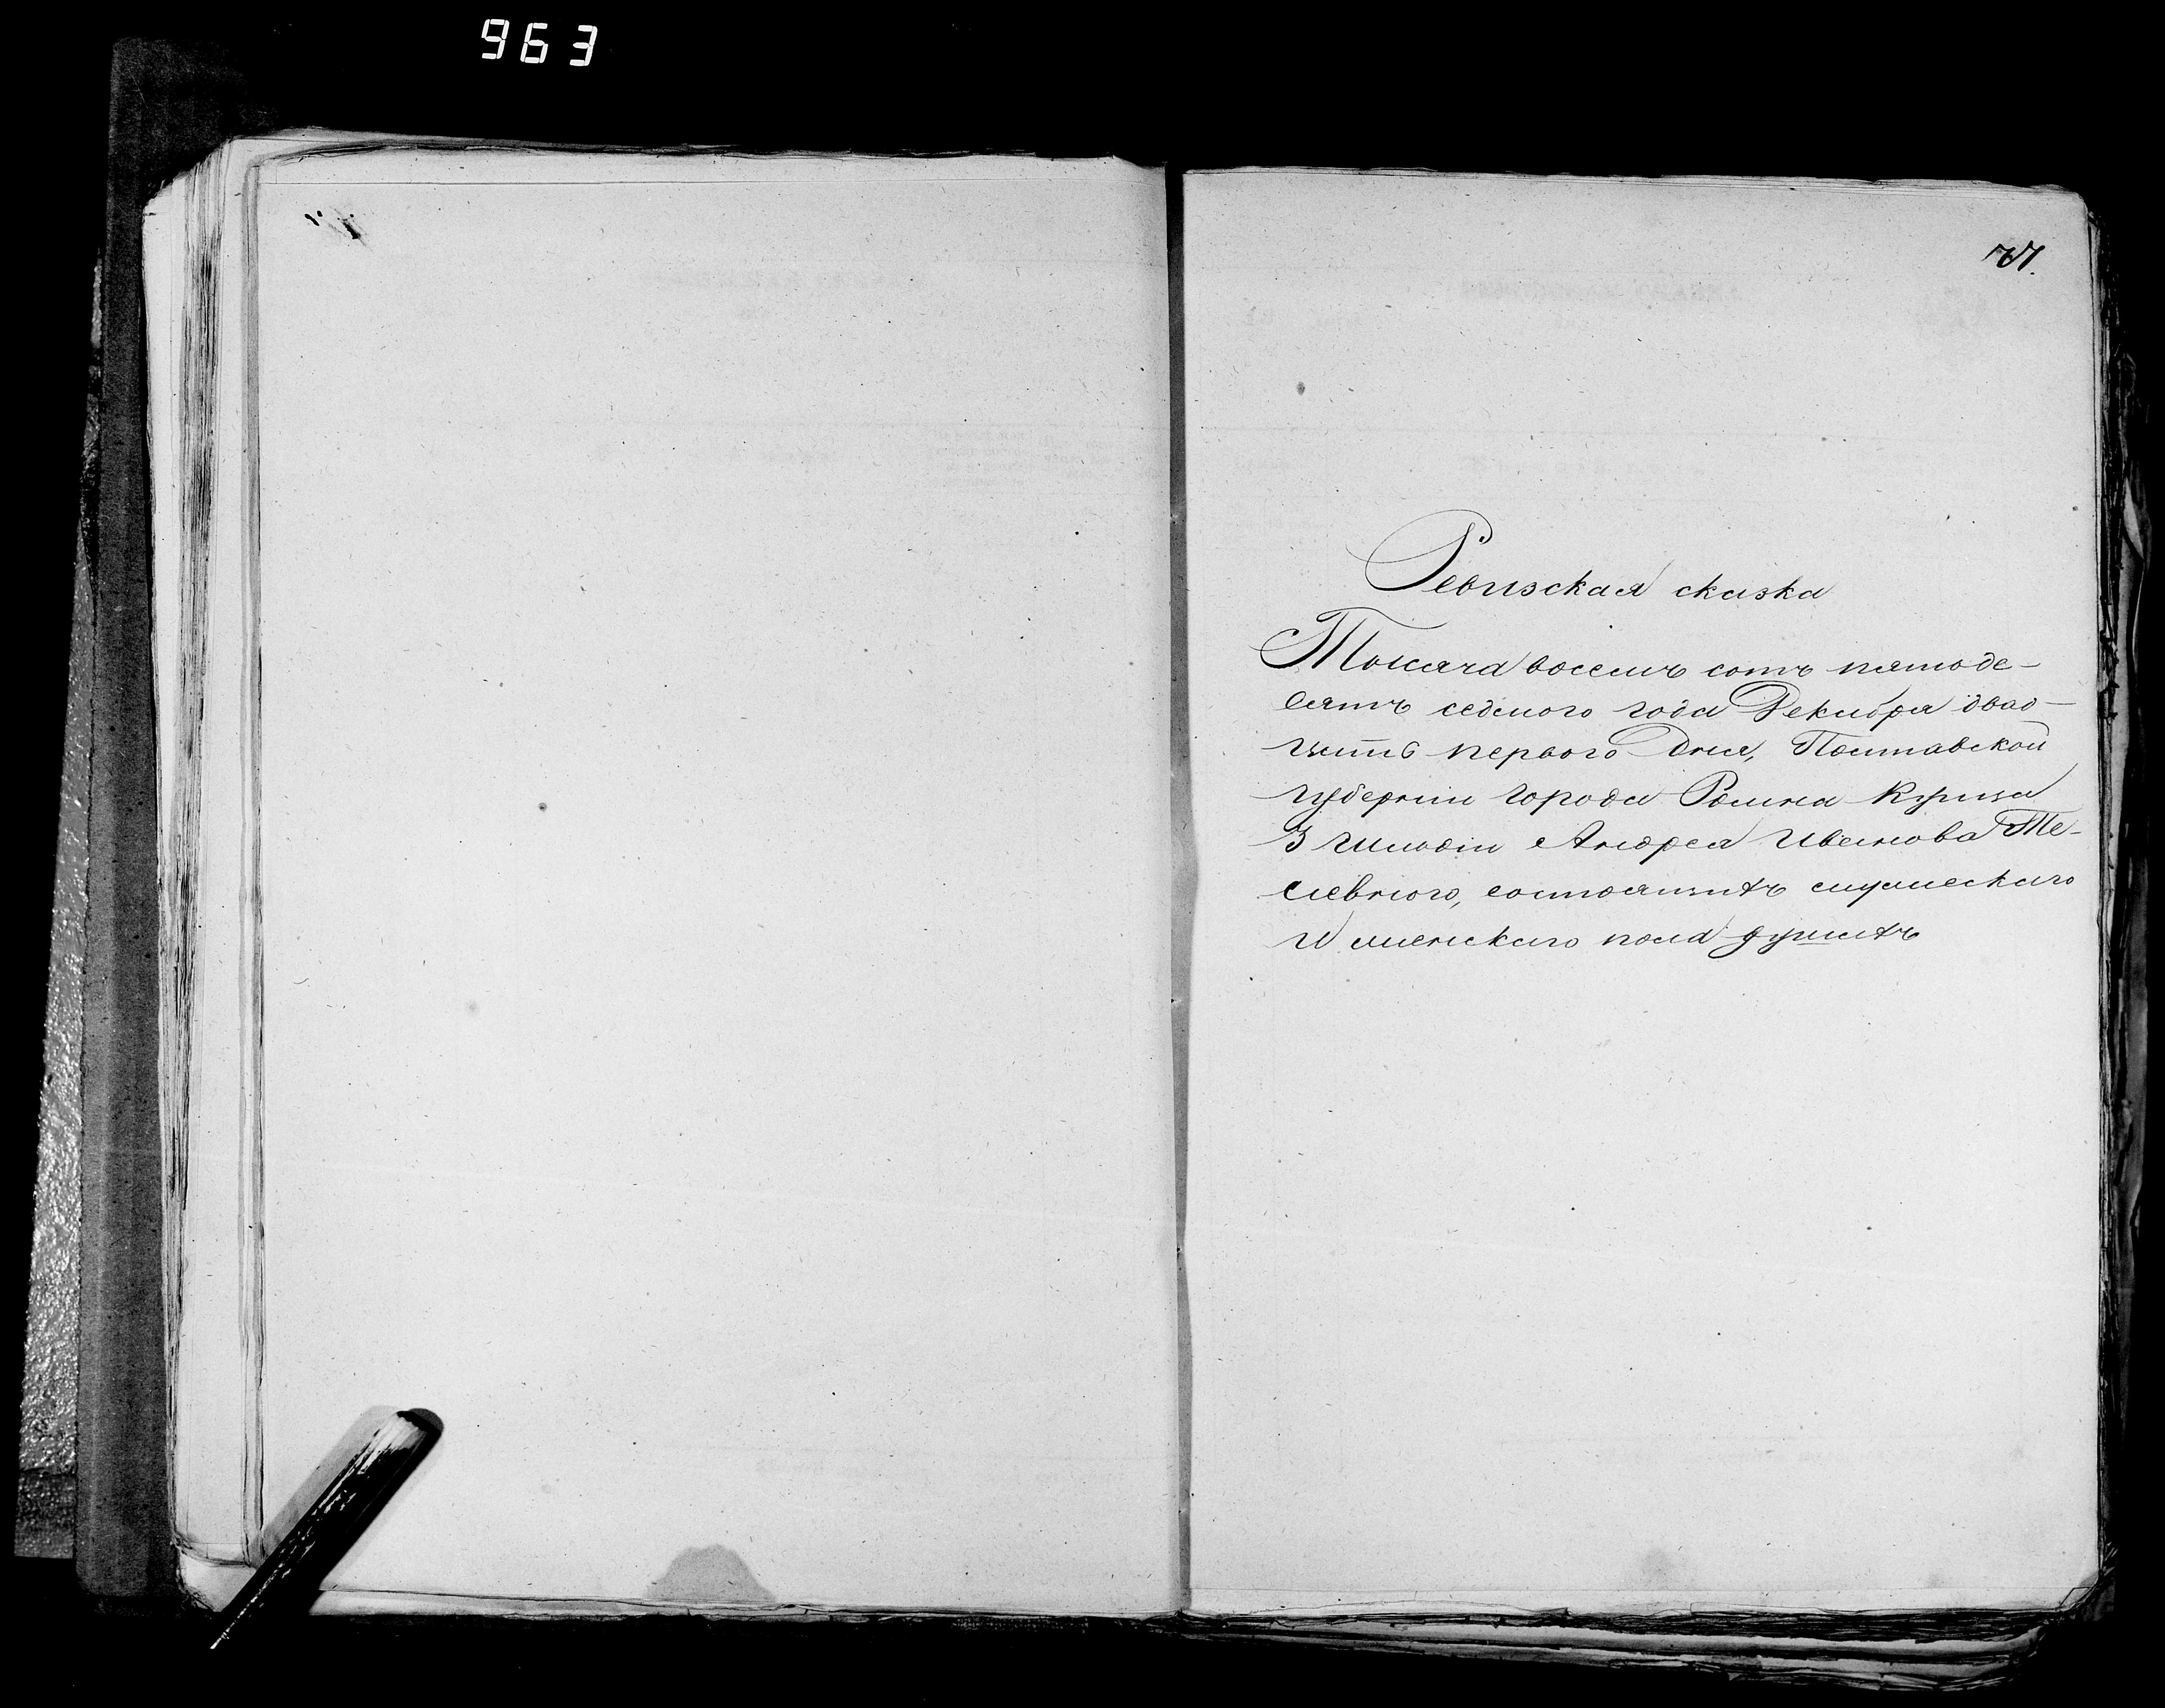 963
77.
Ревизская сказка
Тысяча восемь сотъ пятьде-
сятъ седьмого года Декабря двад-
цать первого Дня, Полтавской
губернiи города Ромна Купца
3 гильдiи Андрея Иванова
состоящихъ мужескаго
и женскаго пола душахъ